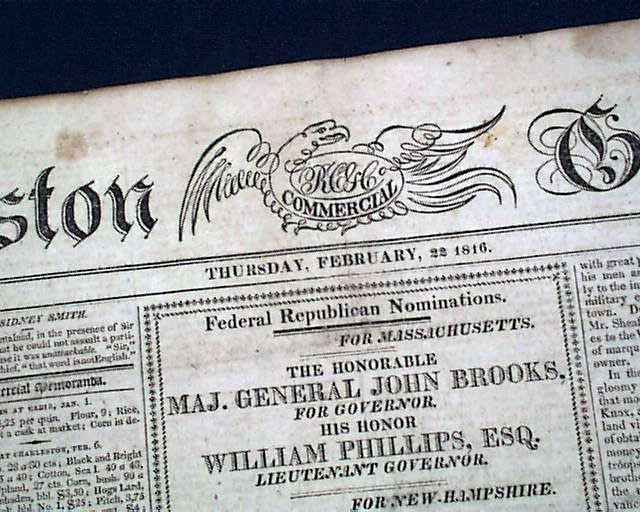 ston
COMMERCIAL
G
THURSDAY, FEBRUARY, 22 1816.
SIDNEY SMITH.
ntained, in the presence of Sir
hat he could not assault a parti-
se it was unattackable. "Sir,"
chief, "that word is not English."
ercial Memoranda.
ES AT CADIZ, JAN. 1.
,25 per quin. Flour, 9; Rice,
a cask at market; Corn in de-
AT CHARLESTON, FEB. 6.
Black and Bright
Cotton, Sea I.
pland, 27 cts. Corn, bush. 90 a
bbl. $3,50; Hogs Lard,
bbl. No. 1. $25; Pitch, 3,75
Federal Republican Nominations.
FOR MASSACHUSETTS.
THE HONORABLE
MAJ. GENERAL JOHN BROOKS,
FOR GOVERNOR.
HIS HONOR
WILLIAM PHILLIPS, ESQ.
LIEUTENANT GOVERNOR.
FOR NEW-HAMPSHIRE.
with great p
his men at
ly to the in
military p
town. D
Mr. She
es to the
of marqu
owner.
In the
gloomy
that mo
Knox,
land vi
of obta
money
troop
broth
of the